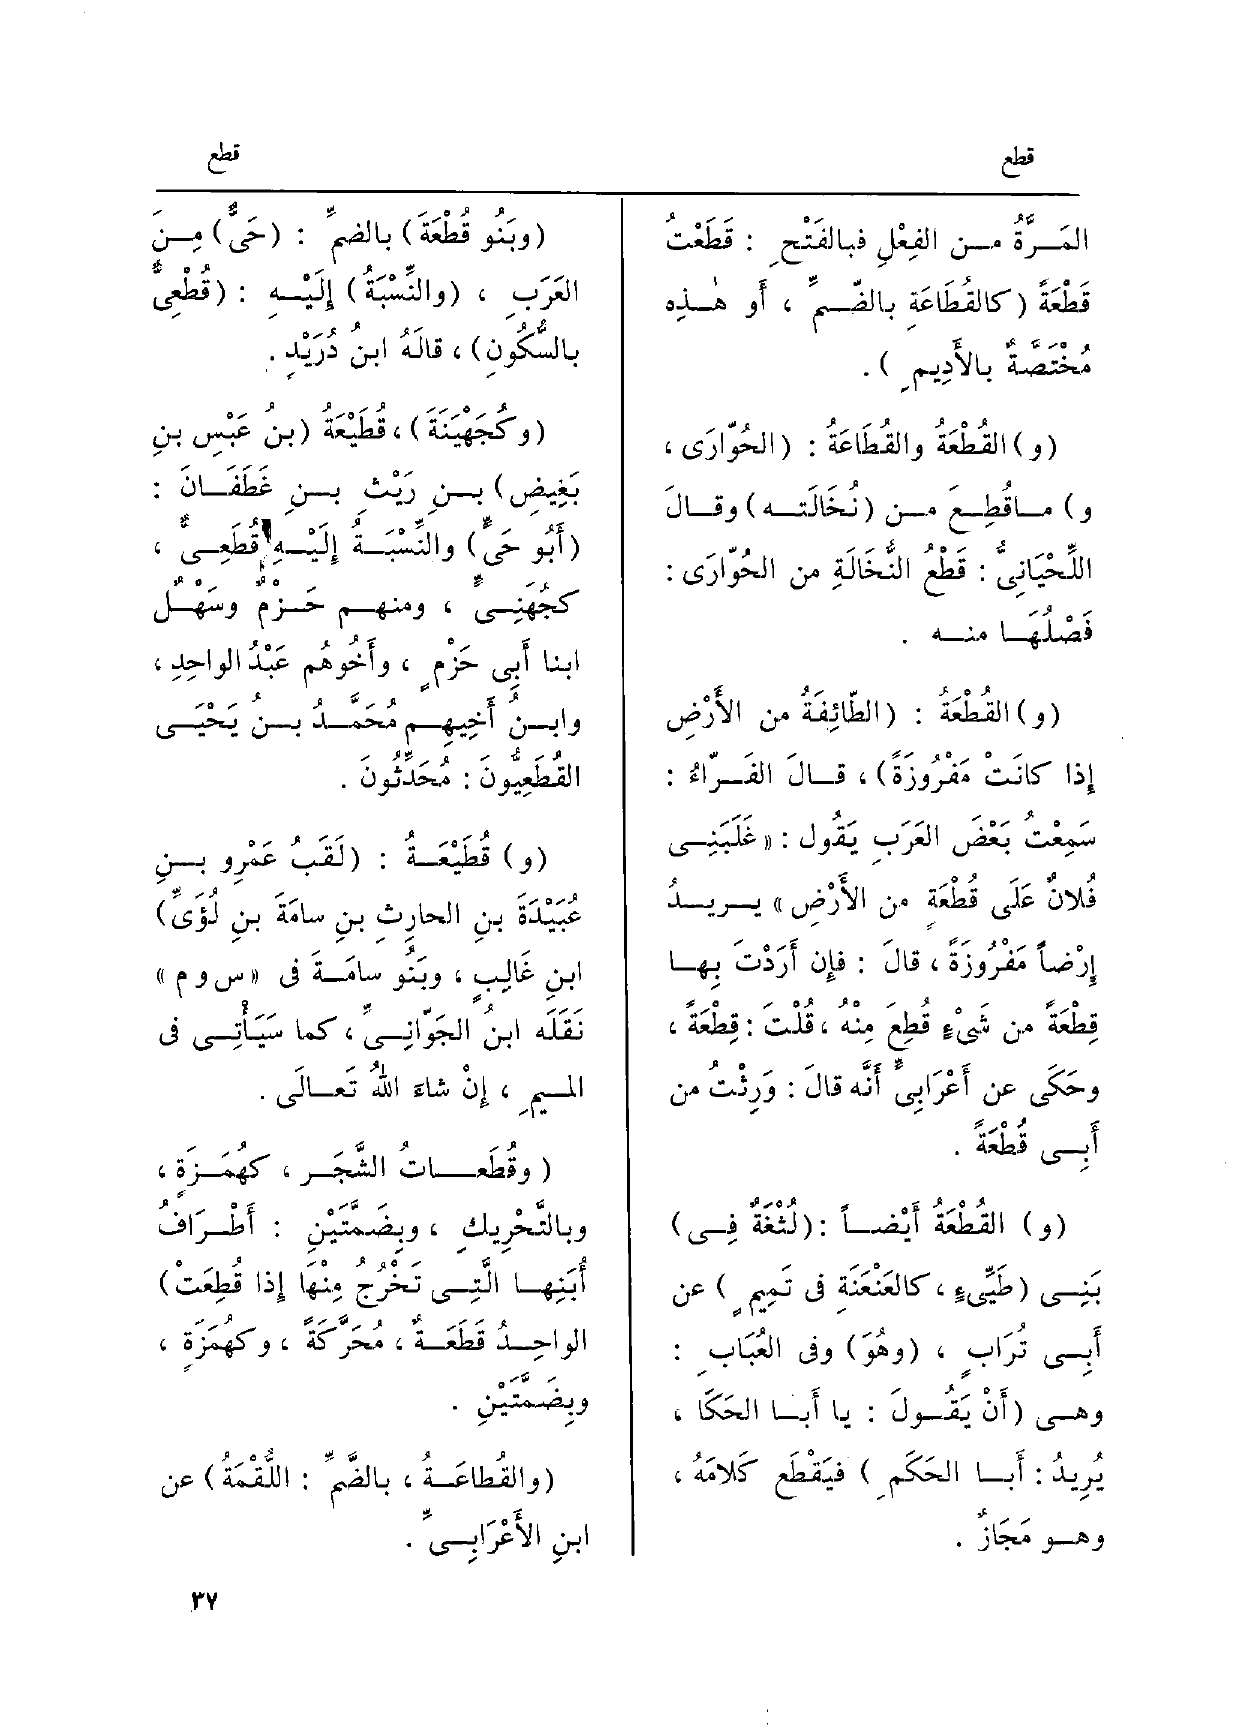 قطع
قطع
المَرَّةُ من الفِعْلِ فبالفَتْحِ : قَطَعْتُ
قَطْعَةً (كالقُطَاعَةِ بالضَّمِّ ، أو هٰذِه
مُخْتَصَّةٌ بالأَدِيمِ ) .
(و) القُطْعَةُ والقُطَاعَةُ : (الحُوَّارَى ،
و) ماقُطِعَ من (نُخَالَتِه) وقالَ
اللِّحْيَانِيُّ : قَطْعُ النُّخَالَةِ من الحُوَّارَى :
فَصْلُهَا منه .
(و) القُطْعَةُ : (الطَّائِفَةُ من الأَرْضِ
إذا كانَتْ مَفْرُوزَةً) ، قالَ الفَرَّاءُ :
سَمِعْتُ بَعْضَ العَرَبِ يَقُول : « غَلَبَنِى
فُلانٌ عَلَى قُطْعَةٍ من الأَرْضِ » يريدُ
إرْضاً مَفْرُوزَةً ، قالَ : فإن أَرَدْتَ بِها
قِطْعَةً من شَىْءٍ قُطِعَ مِنْهُ ، قُلْتَ : قِطْعَةً ،
وحَكَى عن أَعْرَابِىٍّ أَنَّه قالَ : وَرِثْتُ من
أَبِى قُطْعَةً .
(و) القُطْعَةُ أَيْضاً : (لُثْغَةٌ فِى)
بَنِى (طَيِّىءٍ ، كالعَنْعَنَةِ فى تَمِيمٍ ) عن
أَبِى تُرَابٍ ، (وهُوَ) وفى العُبَابِ :
وهى (أَنْ يَقُولَ : يا أَبا الحَكَا ،
يُرِيدُ : أَبا الحَكَمِ ) فيَقْطَع كَلامَهُ ،
وهو مَجَازٌ .
(وبَنُو قُطْعَةَ) بالضمِّ : (حَىٌّ) مِنَ
العَرَبِ ، (والنِّسْبَةُ) إِلَيْهِ : (قُطْعِىٌّ
بالسُّكُونِ) ، قالَهُ ابنُ دُرَيْدٍ .
(وكَجُهَيْنَةَ) ، قُطَيْعَةُ (بنُ عَبْسِ بنِ
بَغِيضِ) بنِ رَيْثِ بنِ غَطَفَانَ :
(أَبُو حَىٍّ) والنِّسْبَةُ إِلَيْهِ قُطَعِىٌّ ،
كجُهَنِىٍّ ، ومنهم حَزْمٌ وسَهْلٌ
ابنا أَبِى حَزْمٍ ، وأَخُوهُم عَبْدُ الواحِدِ ،
وابنُ أَخِيهِم مُحَمَّدُ بنُ يَحْيَى
القُطَعِيُّونَ : مُحَدِّثُونَ .
(و) قُطَيْعَةُ : (لَقَبُ عَمْرِو بنِ
عُبَيْدَةَ بنِ الحارِثِ بنِ سامَةَ بنِ لُؤَىِّ)
ابنِ غَالِبٍ ، وبَنُو سامَةَ فى « س و م »
نَقَلَه ابنُ الجَوّانِىِّ ، كما سَيَأْتِى فى
الميمِ ، إنْ شاءَ اللهُ تَعالَى .
( وقُطَعاتُ الشَّجَرِ ، كهُمَزَةٍ ،
وبالتَّحْرِيكِ ، وبِضَمَّتَيْنِ : أَطْرَافُ
أُبَنِها الَّتِى تَخْرُجُ مِنْهَا إذا قُطِعَتْ)
الواحِدُ قُطَعَةٌ ، مُحَرَّكَةً ، وكهُمَزَةٍ ،
وبِضَمَّتَيْنِ .
(والقُطاعَةُ ، بالضَّمِّ : اللُّقْمَةُ) عن
ابنِ الأَعْرَابِىِّ .
٣٧